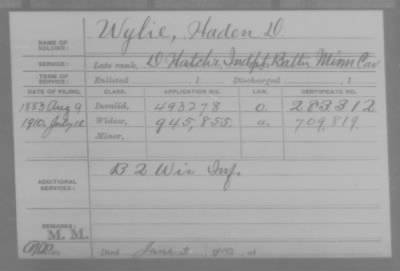 NAME OF SOLDIER: Wylie, Haden D.
SERVICE: Late rank, D Hatch's Indpt. Battn Minn Cav
TERM OF SERVICE: Enlisted , 1 Discharged , 1
DATE OF FILING. CLASS. APPLICATION NO. LAW. CERTIFICATE NO.
1883 Aug 9 Invalid, 493278 283312
1910, July 18 Widow, 945,855. 709,819.
Minor,
ADDITIONAL SERVICES: B 2 Wis Inf.
REMARKS:
M. M.
Died June 2, 1910, at